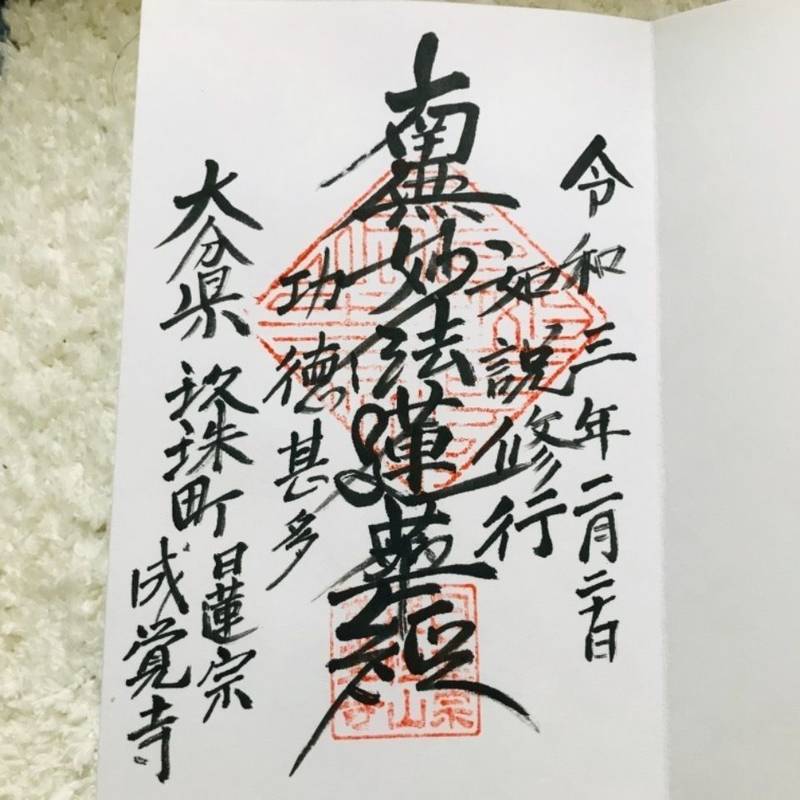 令和三年二月二十日
如説修行
南無妙法蓮華経
功徳甚多
大分県玖珠町日蓮宗
成覚寺